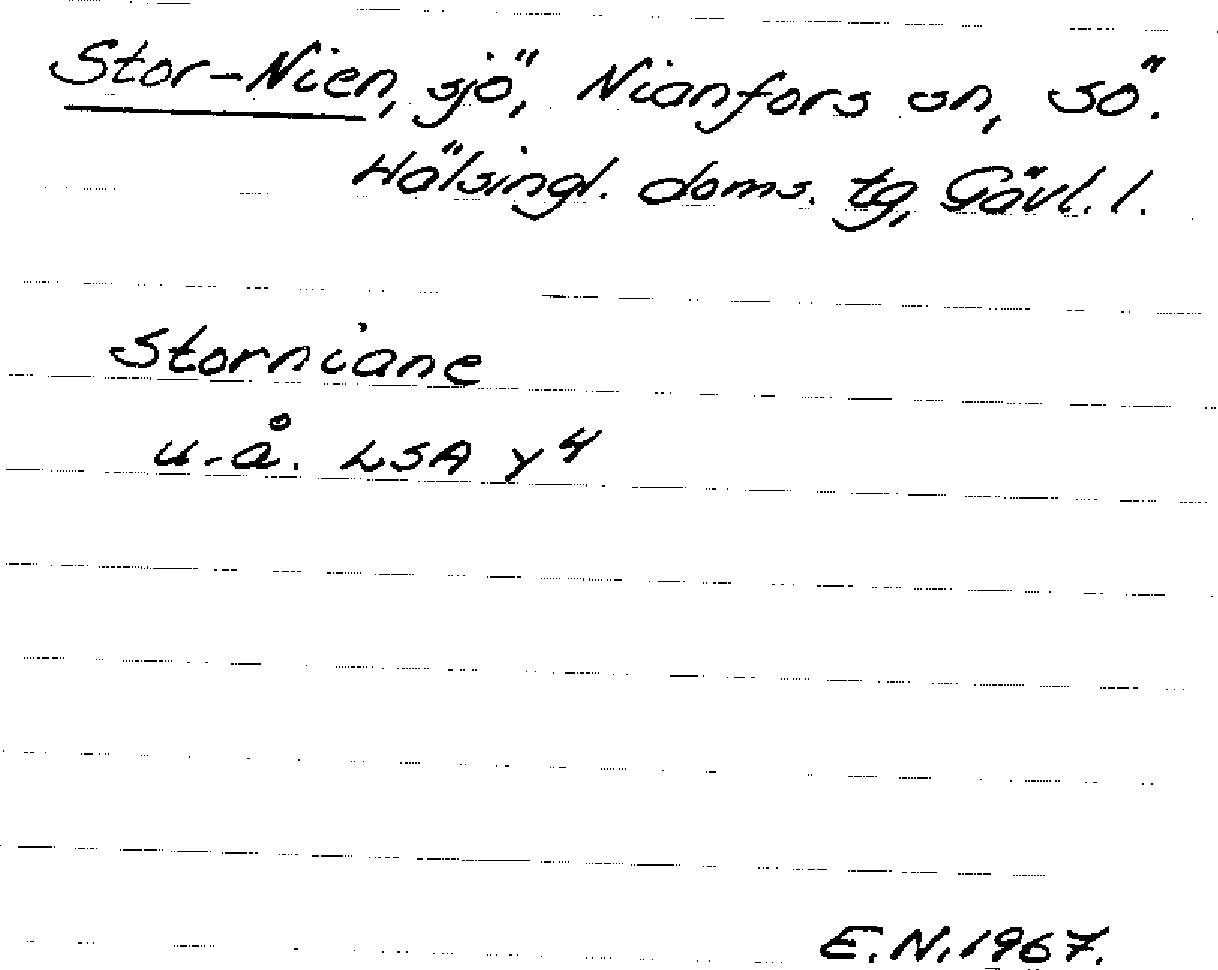 Stor-Nien, sjö, Nianfors sn, sö.
Hälsingl. doms. tg, Gävl. l.
Storniane
u.å. LSA y 4
E.N. 1967.